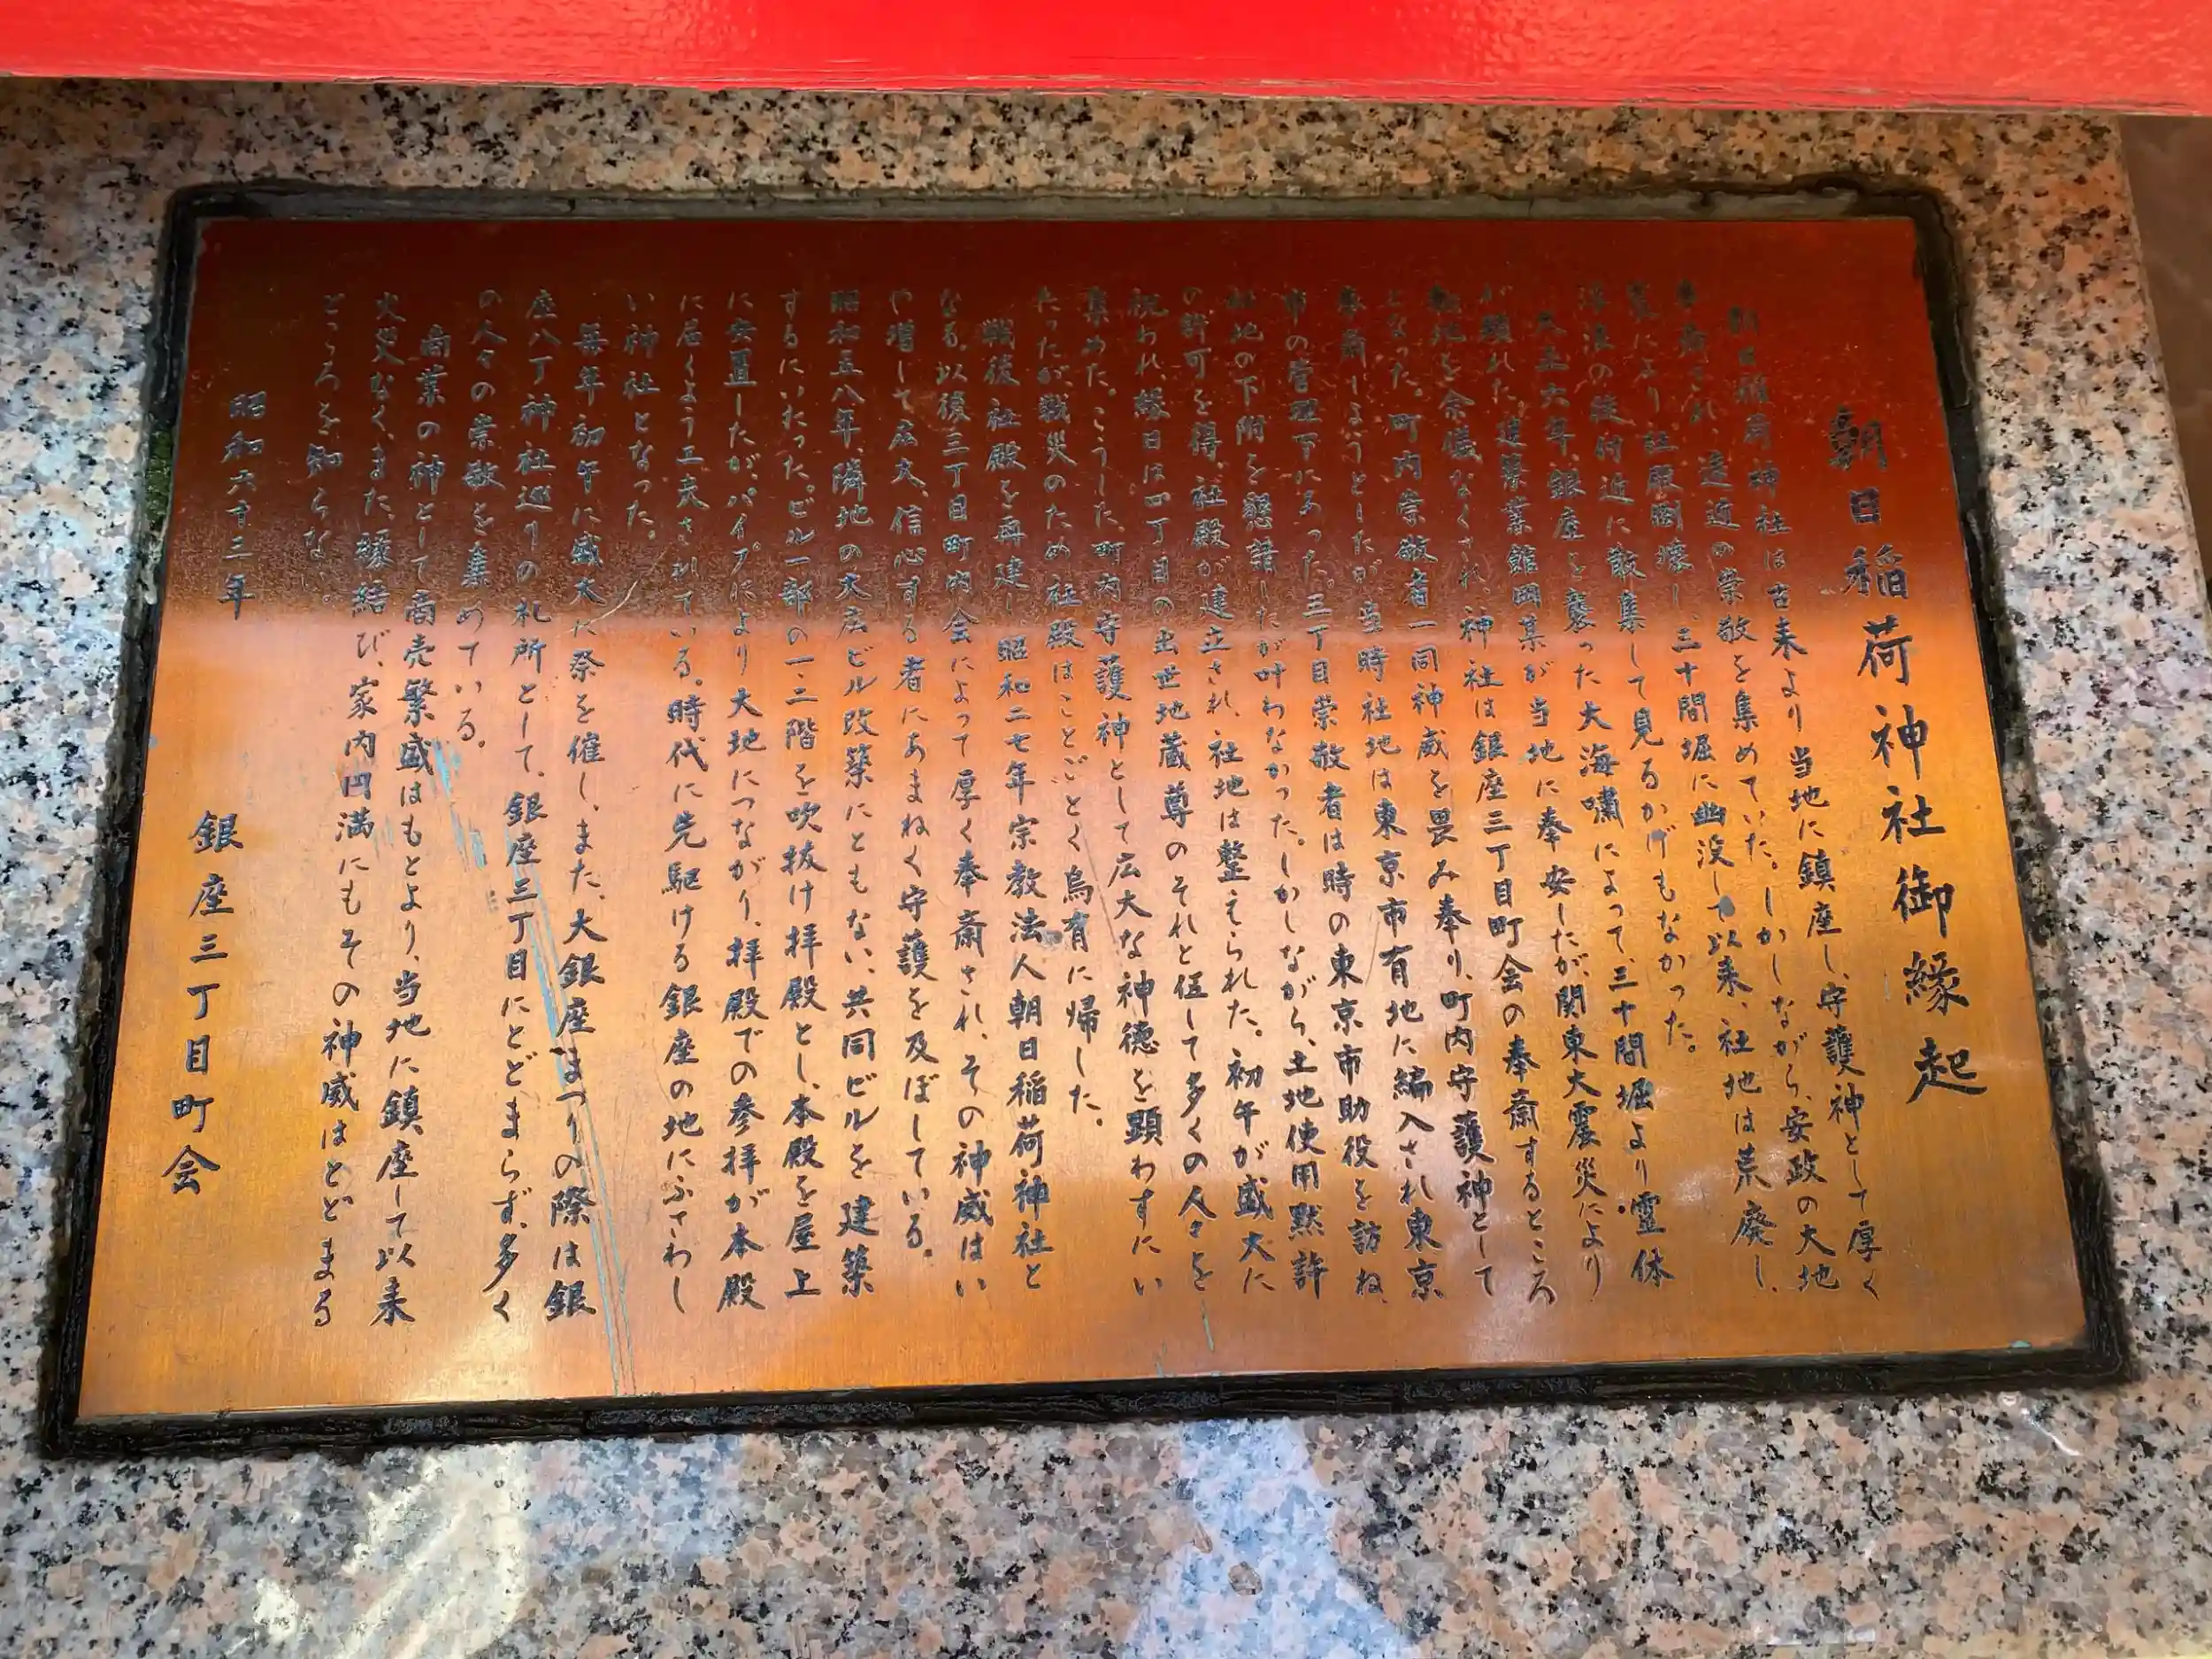 朝日稲荷神社御縁起
朝日稲荷神社は古来より当地に鎮座し、守護神として厚く
奉斎され、遠近の崇敬を集めていた。しかしながら、安政の大地
震により社殿倒壊し、三十間堀に幽没して以来、社地は荒廃し、
見るかげもなかった。
大正六年、銀座を襲った大海嘯によって、三十間堀より霊体
が当地に奉安したが、関東大震災により
が顕れた。建築業館岡某
敷地を余儀なくされ、神社は銀座三丁目町会の奉斎するところ
となった。町内崇敬者一同神威を畏み奉り、町内守護神として
奉斎しようとしたが当時社地は東京市有地に編入され東京
市の管理下にあった。三丁目崇敬者は時の東京市助役を訪ね、
社地の下附を懇請したが叶わなかった。しかしながら、土地使用黙許
の許可を得、社殿が建立され、社地は整えられた。初午が盛大に
祝われ、縁日は四丁目の出世地蔵尊のそれと伍して多くの人々を
集めた。こうした、町内守護神として広大な神徳を顕わすにい
たったが、戦災のため社殿はことごとく烏有に帰した。
戦後社殿を再建し、昭和二七年宗教法人朝日稲荷神社と
なる。以後三丁目町内会によって厚く奉斎され、その神威はい
や増して広大、信心する者にあまねく守護を及ぼしている。
昭和五八年、隣地の大広ビル改築にともない、共同ビルを建築
するにいたったビル一部の一、二階を吹抜け拝殿とし、本殿を屋上
に安置したが、パイプにより大地につながり、拝殿での参拝が本殿
に届くよう工夫されている。時代に先駆ける銀座の地にふさわし
い神社となった。
毎年初午に盛大に祭を催し、また、大銀座まつりの際は銀
座八丁神社巡りの札所として、銀座三丁目にとどまらず、多く
の人々の崇敬を集めている。
商業の神として商売繁盛はもとより、当地に鎮座して以来
火災なく、また、縁結び、家内円満にもその神威はとどまる
ところを知らない。
昭和六十三年
銀座三丁目町会